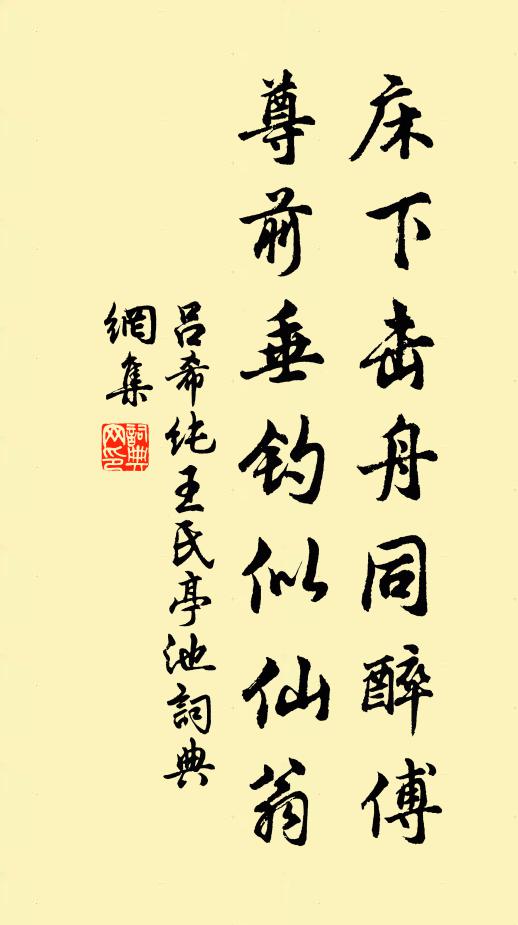 床下击舟同醉傅
尊前垂钓似仙翁
吕希纯王氏亭池詞典
網集
詞典网印